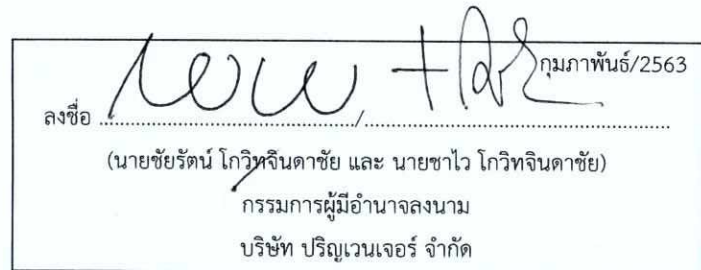 กุมภาพันธ์/2563
ลงชื่อ ................................/................................................
(นายชัยรัตน์ โกวิทจินดาชัย และ นายชาไว โกวิทจินดาชัย)
กรรมการผู้มีอำนาจลงนาม
บริษัท ปริญเวนเจอร์ จำกัด